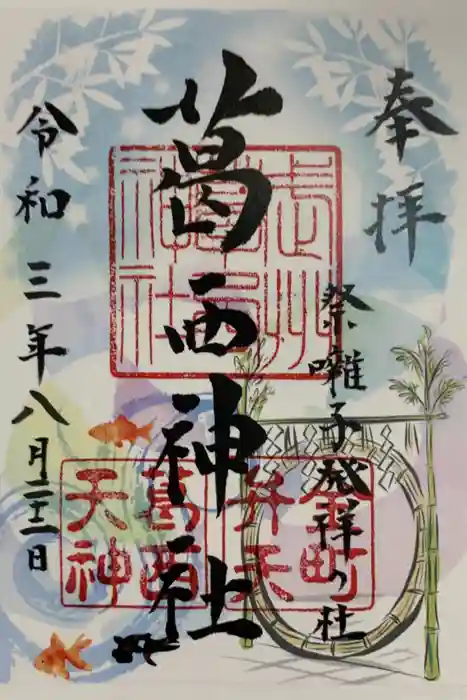 奉拝
祭囃子発祥の社
葛西神社
令和三年八月二十二日
武州
葛西
神社
金町
弁天
葛西
天神